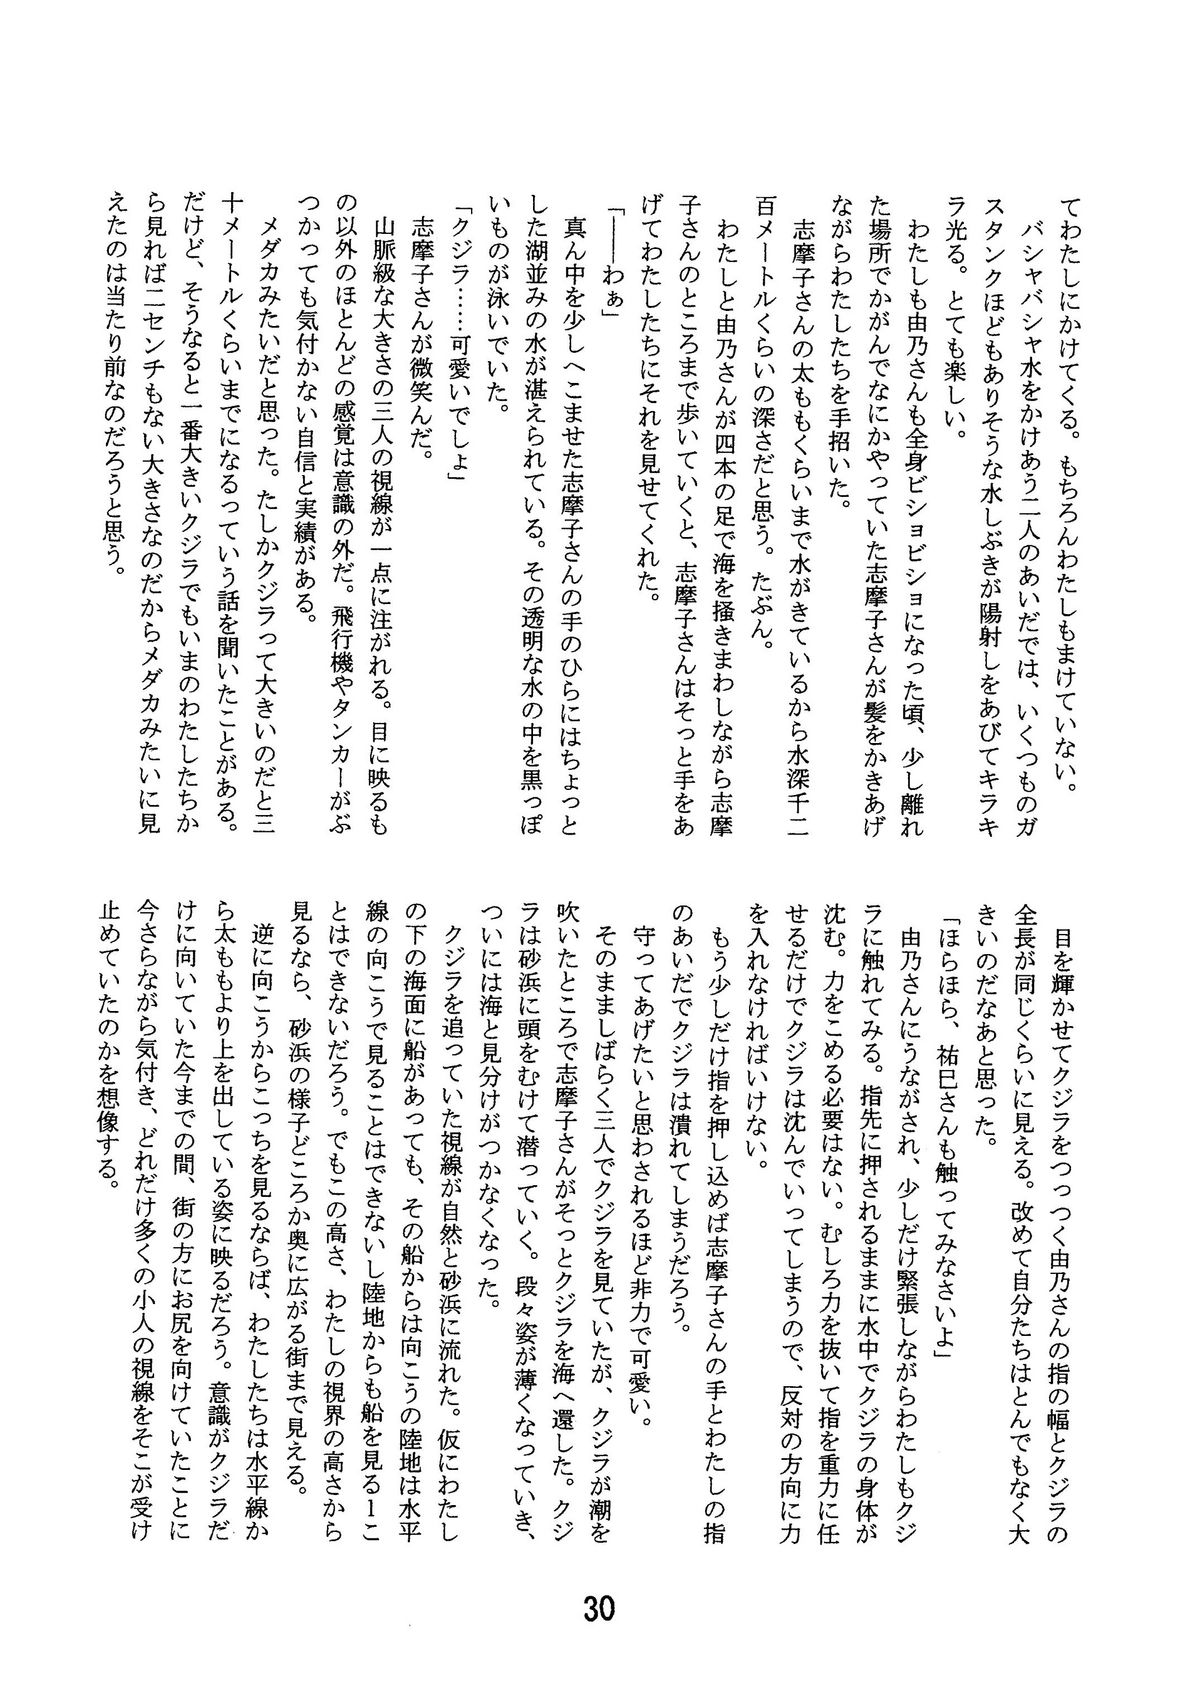 てわたしにかけてくる。もちろんわたしもまけていない。
　バシャバシャ水をかけあう二人のあいだでは、いくつものガ
スタンクほどもありそうな水しぶきが陽射しをあびてキラキ
ラ光る。とても楽しい。
　わたしも由乃さんも全身ビショビショになった頃、少し離れ
た場所でかがんでなにかやっていた志摩子さんが髪をかきあげ
ながらわたしたちを手招いた。
　志摩子さんの太ももくらいまで水がきているから水深千二
百メートルくらいの深さだと思う。たぶん。
　わたしと由乃さんが四本の足で海を掻きまわしながら志摩
子さんのところまで歩いていくと、志摩子さんはそっと手をあ
げてわたしたちにそれを見せてくれた。
「――わぁ」
　真ん中を少しへこませた志摩子さんの手のひらにはちょっと
した湖並みの水が湛えられている。その透明な水の中を黒っぽ
いものが泳いでいた。
「クジラ……可愛いでしょ」
　志摩子さんが微笑んだ。
　山脈級な大きさの三人の視線が一点に注がれる。目に映るも
の以外のほとんどの感覚は意識の外だ。飛行機やタンカーがぶ
つかっても気付かない自信と実績がある。
　メダカみたいだと思った。たしかクジラって大きいのだと三
十メートルくらいまでになるっていう話を聞いたことがある。
だけど、そうなると一番大きいクジラでもいまのわたしたちか
ら見れば二センチもない大きさなのだからメダカみたいに見
えたのは当たり前なのだろうと思う。
　目を輝かせてクジラをつっつく由乃さんの指の幅とクジラの
全長が同じくらいに見える。改めて自分たちはとんでもなく大
きいのだなあと思った。
「ほらほら、祐巳さんも触ってみなさいよ」
　由乃さんにうながされ、少しだけ緊張しながらわたしもクジ
ラに触れてみる。指先に押されるままに水中でクジラの身体が
沈む。力をこめる必要はない。むしろ力を抜いて指を重力に任
せるだけでクジラは沈んでいってしまうので、反対の方向に力
を入れなければいけない。
　もう少しだけ指を押し込めば志摩子さんの手とわたしの指
のあいだでクジラは潰れてしまうだろう。
　守ってあげたいと思わされるほど非力で可愛い。
　そのまましばらく三人でクジラを見ていたが、クジラが潮を
吹いたところで志摩子さんがそっとクジラを海へ還した。クジ
ラは砂浜に頭をむけて潜っていく。段々姿が薄くなっていき、
ついには海と見分けがつかなくなった。
　クジラを追っていた視線が自然と砂浜に流れた。仮にわたし
の下の海面に船があっても、その船からは向こうの陸地は水平
線の向こうで見ることはできないし陸地からも船を見る1こ
とはできないだろう。でもこの高さ、わたしの視界の高さから
見るなら、砂浜の様子どころか奥に広がる街まで見える。
　逆に向こうからこっちを見るならば、わたしたちは水平線か
ら太ももより上を出している姿に映るだろう。意識がクジラだ
けに向いていた今までの間、街の方にお尻を向けていたことに
今さらながら気付き、どれだけ多くの小人の視線をそこが受け
止めていたのかを想像する。
30